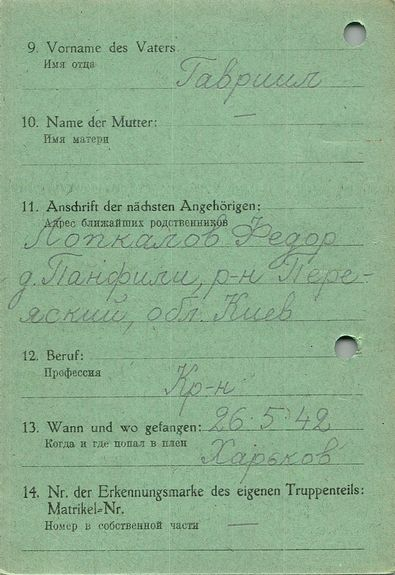 9. Vorname des Vaters
Имя отца
Гавриил
10. Name der Mutter:
—
Имя матери
11. Anschrift der nächsten Angehörigen:
Адрес ближайших родственников
Лопкалов Федор
д. Панфили, р-н Пере-
яский, обл. Киев
12. Beruf:
Профессия
Кр-н
13. Wann und wo gefangen: 26 5 42
Когда и где попал в плен
Харьков
14. Nr. der Erkennungsmarke des eigenen Truppenteils:
Matrikel=Nr.
Номер в собственной части —